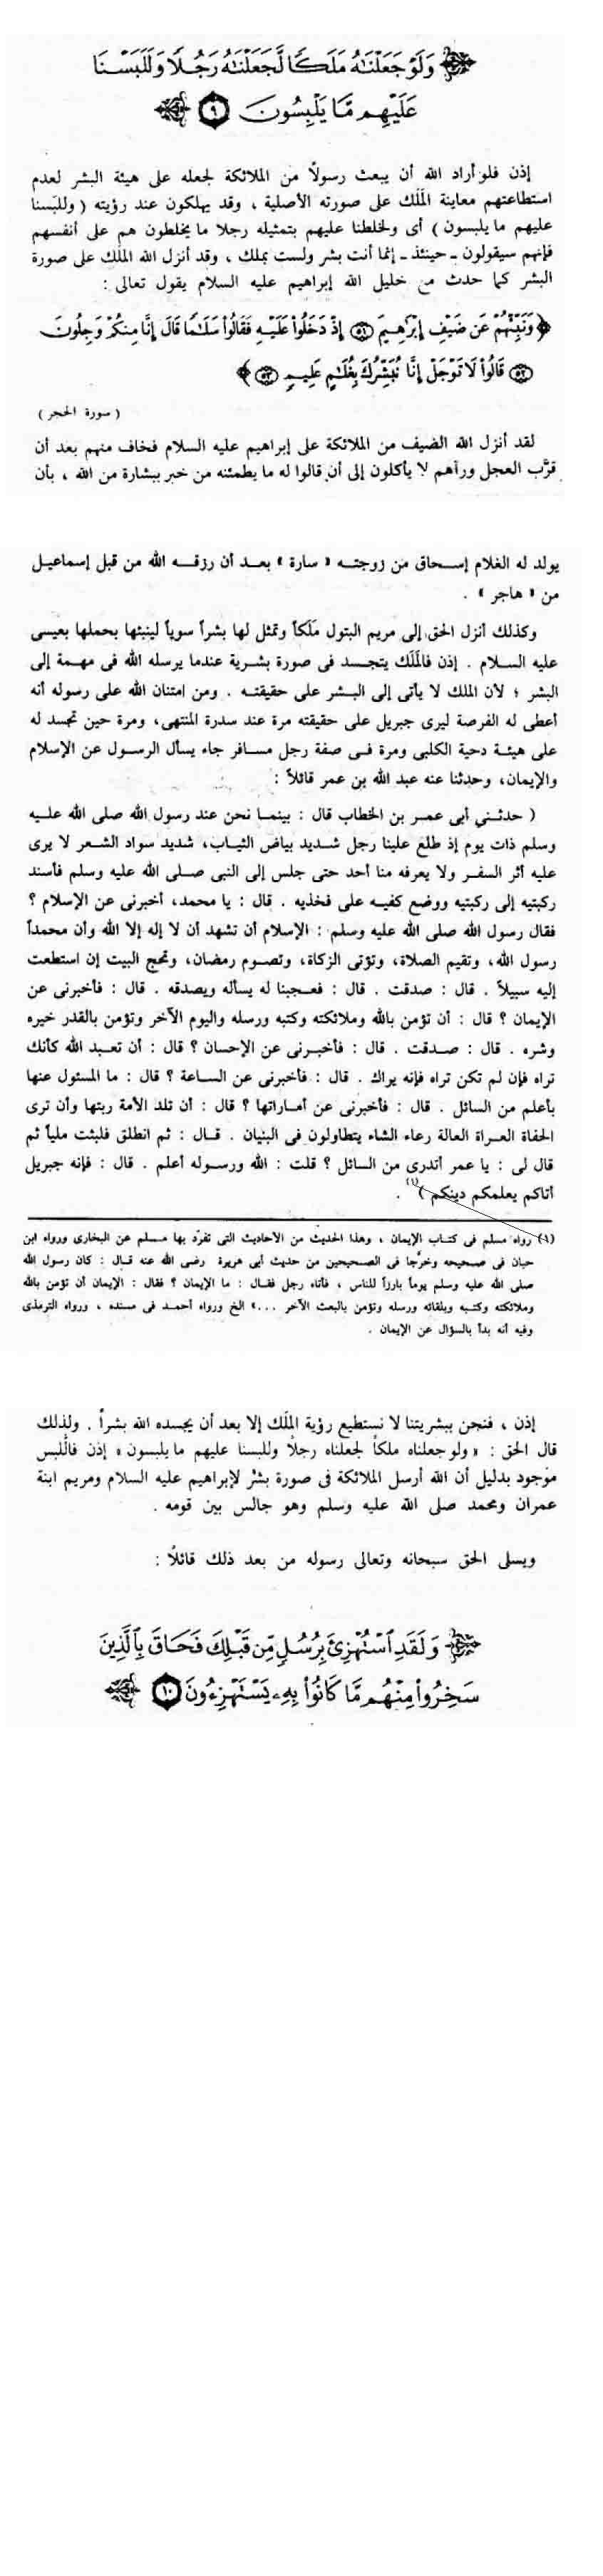 وَلَوْ جَعَلْنَٰهُ مَلَكًا لَّجَعَلْنَٰهُ رَجُلًا وَلَلَبَسْنَا
عَلَيْهِم مَّا يَلْبِسُونَ ٩
إذن فلو أراد الله أن يبعث رسولاً من الملائكة لجعله على هيئة البشر لعدم
استطاعتهم معاينة المَلَك على صورته الأصلية ، وقد يهلكون عند رؤيته ( وللبسنا
عليهم ما يلبسون ) أى ولخلطنا عليهم بتمثيله رجلا ما يخلطون هم على أنفسهم
فإنهم سيقولون ـ حينئذ ـ إنما أنت بشر ولست بملك ، وقد أنزل الله الملَك على صورة
البشر كما حدث مع خليل الله إبراهيم عليه السلام يقول تعالى :
﴿ وَنَبِّئْهُمْ عَن ضَيْفِ إِبْرَٰهِيمَ ٥١ إِذْ دَخَلُوا۟ عَلَيْهِ فَقَالُوا۟ سَلَٰمًا قَالَ إِنَّا مِنكُمْ وَجِلُونَ
٥٢ قَالُوا۟ لَا تَوْجَلْ إِنَّا نُبَشِّرُكَ بِغُلَٰمٍ عَلِيمٍ ٥٣ ﴾
( سورة الحجر )
لقد أنزل الله الضيف من الملائكة على إبراهيم عليه السلام فخاف منهم بعد أن
قرَّب العجل ورآهم لا يأكلون إلى أن قالوا له ما يطمئنه من خبر ببشارة من الله ، بأن
يولد له الغلام إسحاق من زوجته « سارة » بعد أن رزقه الله من قبل إسماعيل
من « هاجر » .
وكذلك أنزل الحق إلى مريم البتول مَلَكاً وتمثل لها بشراً سوياً لينبئها بحملها بعيسى
عليه السلام . إذن فالمَلَك يتجسد فى صورة بشرية عندما يرسله الله فى مهمة إلى
البشر ؛ لأن الملك لا يأتى إلى البشر على حقيقته . ومن امتنان الله على رسوله أنه
أعطى له الفرصة ليرى جبريل على حقيقته مرة عند سدرة المنتهى، ومرة حين تجسد له
على هيئة دحية الكلبى ومرة فى صفة رجل مسافر جاء يسأل الرسول عن الإسلام
والإيمان، وحدثنا عنه عبد الله بن عمر قائلاً :
( حدثنى أبى عمر بن الخطاب قال : بينما نحن عند رسول الله صلى الله عليه
وسلم ذات يوم إذ طلع علينا رجل شديد بياض الثياب، شديد سواد الشعر لا يرى
عليه أثر السفر ولا يعرفه منا أحد حتى جلس إلى النبى صلى الله عليه وسلم فأسند
ركبتيه إلى ركبتيه ووضع كفيه على فخذيه . قال : يا محمد، أخبرنى عن الإسلام ؟
فقال رسول الله صلى الله عليه وسلم : الإسلام أن تشهد أن لا إله إلا الله وأن محمداً
رسول الله، وتقيم الصلاة، وتؤتى الزكاة، وتصوم رمضان، وتحج البيت إن استطعت
إليه سبيلاً . قال : صدقت . قال : فعجبنا له يسأله ويصدقه . قال : فأخبرنى عن
الإيمان ؟ قال : أن تؤمن بالله وملائكته وكتبه ورسله واليوم الآخر وتؤمن بالقدر خيره
وشره . قال : صدقت . قال : فأخبرنى عن الإحسان ؟ قال : أن تعبد الله كأنك
تراه فإن لم تكن تراه فإنه يراك . قال : فأخبرنى عن الساعة ؟ قال : ما المسئول عنها
بأعلم من السائل . قال : فأخبرنى عن أماراتها ؟ قال : أن تلد الأمة ربتها وأن ترى
الحفاة العراة العالة رعاء الشاء يتطاولون فى البنيان . قال : ثم انطلق فلبثت ملياً ثم
قال لى : يا عمر أتدرى من السائل ؟ قلت : الله ورسوله أعلم . قال : فإنه جبريل
أتاكم يعلمكم دينكم )(١) .
(١) رواه مسلم فى كتاب الإيمان ، وهذا الحديث من الأحاديث التى تفرّد بها مسلم عن البخارى ورواه ابن
حبان فى صحيحه وخرّجا فى الصحيحين من حديث أبى هريرة رضى الله عنه قال : كان رسول الله
صلى الله عليه وسلم يوماً بارزاً للناس ، فأتاه رجل فقال : ما الإيمان ؟ فقال : الإيمان أن تؤمن بالله
وملائكته وكتبه وبلقائه ورسله وتؤمن بالبعث الآخر ...» الخ ورواه أحمد فى مسنده ، ورواه الترمذى
وفيه أنه بدأ بالسؤال عن الإيمان .
إذن ، فنحن ببشريتنا لا نستطيع رؤية الملَك إلا بعد أن يجسده الله بشراً . ولذلك
قال الحق : « ولو جعلناه ملكاً لجعلناه رجلاً وللبسنا عليهم ما يلبسون » إذن فاللبس
موجود بدليل أن الله أرسل الملائكة فى صورة بشر لإبراهيم عليه السلام ومريم ابنة
عمران ومحمد صلى الله عليه وسلم وهو جالس بين قومه .
ويسلى الحق سبحانه وتعالى رسوله من بعد ذلك قائلاً :
وَلَقَدِ ٱسْتُهْزِئَ بِرُسُلٍ مِّن قَبْلِكَ فَحَاقَ بِٱلَّذِينَ
سَخِرُوا۟ مِنْهُم مَّا كَانُوا۟ بِهِۦ يَسْتَهْزِءُونَ ١٠